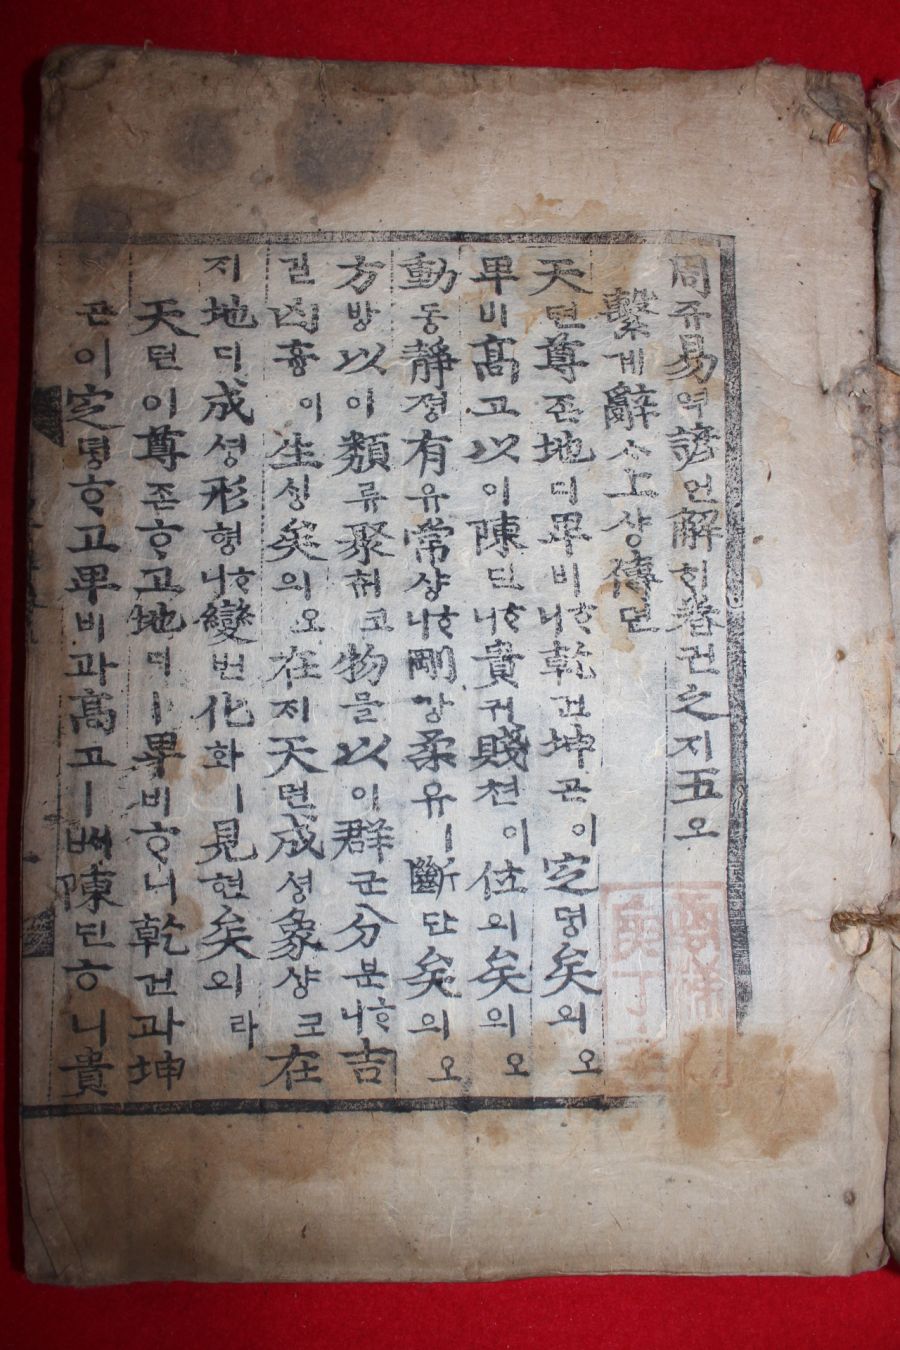 周쥬易역諺언解ᄒᆡ卷권之지五오
繫계辭ᄉᆞ上샹傳뎐
天텬尊존地디卑비ᄒᆞ니乾건坤곤이定뎡矣의오
卑비高고以이陳딘ᄒᆞ니貴귀賤쳔이位위矣의오
動동靜졍有유常샹ᄒᆞ니剛강柔유ㅣ斷단矣의오
方방以이類류聚취코物믈以이群군分분ᄒᆞ니吉
길凶흉이生ᄉᆡᆼ矣의오在ᄌᆡ天텬成셩象샹코在
ᄌᆡ地디成셩形형ᄒᆞ니變변化화ㅣ見현矣의라
天텬이尊존ᄒᆞ고地디ㅣ卑비ᄒᆞ니乾건과坤
곤이定뎡ᄒᆞ고卑비과高고ㅣ ᄡᅥ陳딘ᄒᆞ니貴